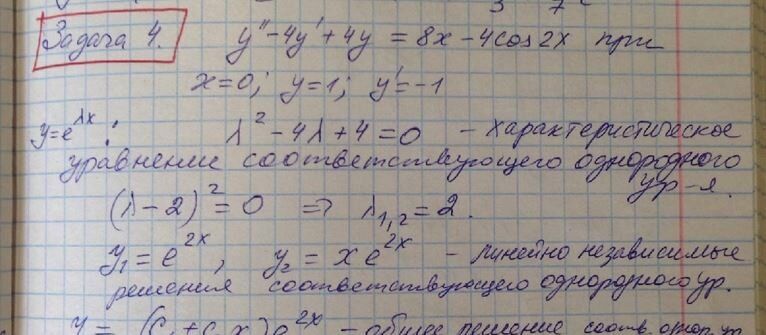 Задача 4. y'' - 4y' + 4y = 8x - 4cos2x при
x=0; y=1; y'=-1
y=e^λx : λ² - 4λ + 4 = 0 - характеристическое
уравнение соответствующего однородного
ур-я.
(λ-2)² = 0 ⇒ λ₁,₂ = 2.
y₁ = e^2x, y₂ = x e^2x - линейно независимые
решения соответствующего однородного ур.
y = (C₁+C₂x) e^2x - общее решение соотв. однор. ур